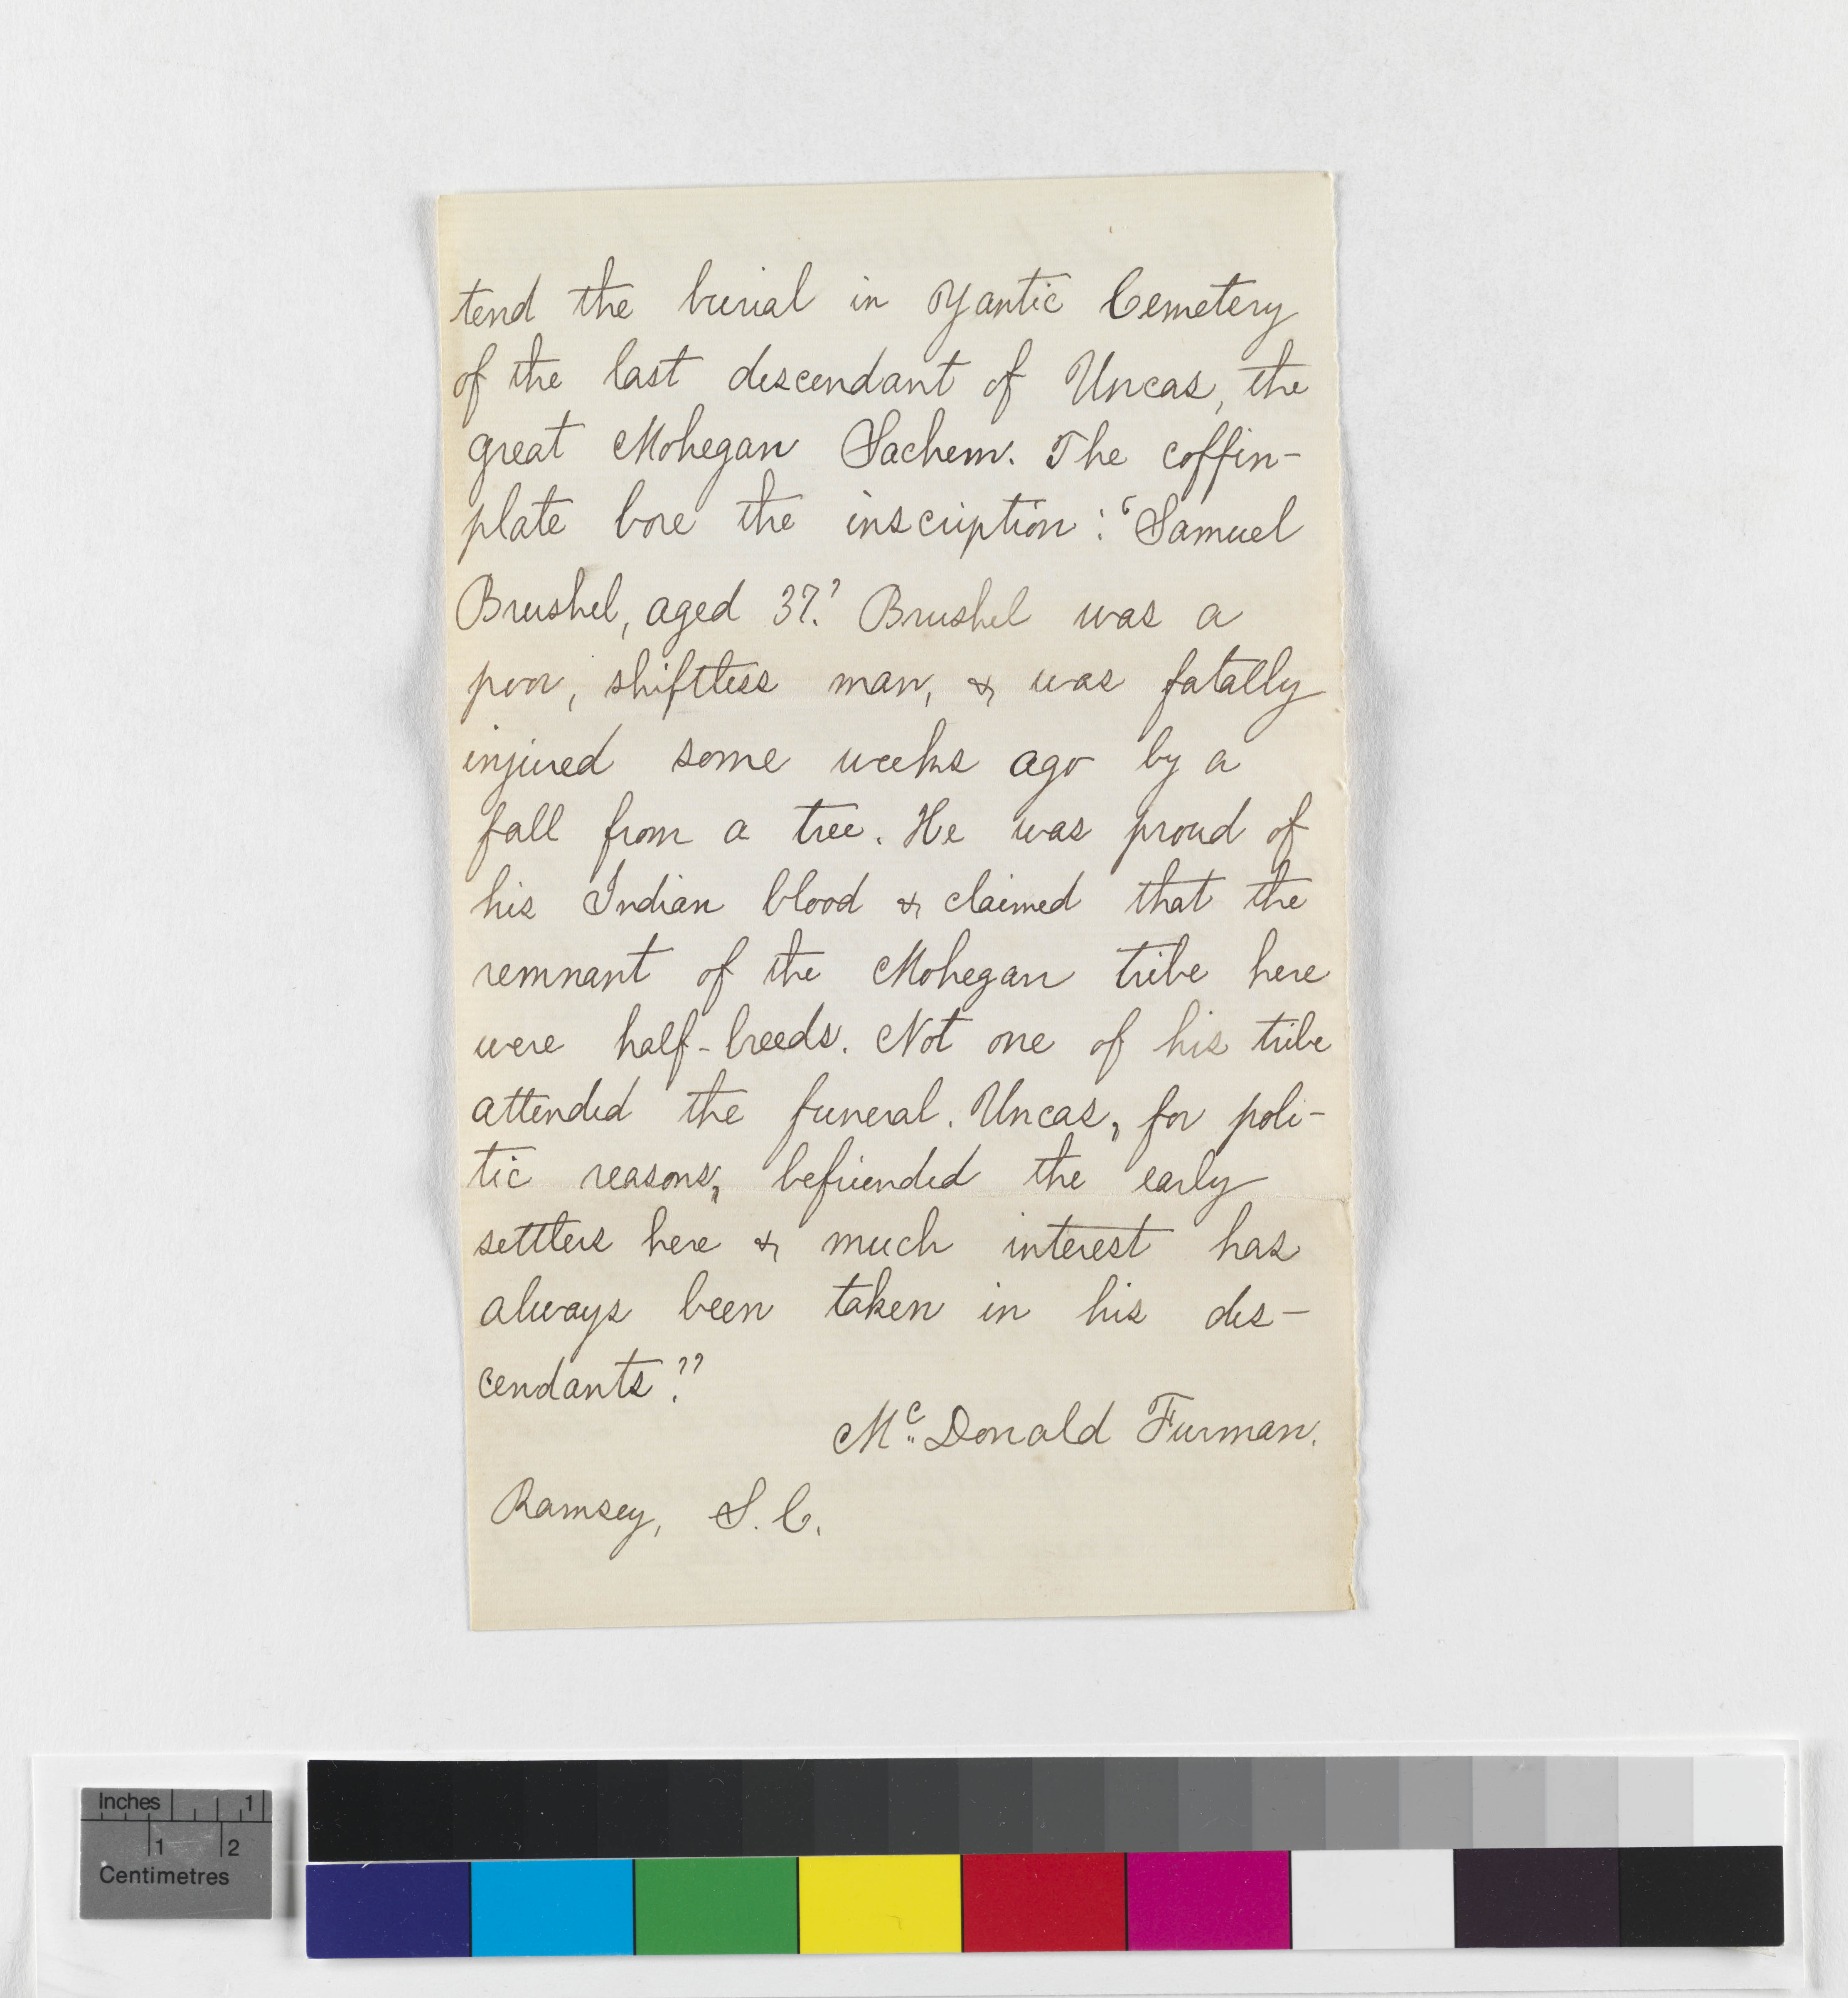 tend the burial in Yantic Cemetery
of the last descendant of Uncas, the
great Mohegan Sachem. The coffin-
plate bore the inscription: 'Samuel
Brushel, aged 37.' Brushel was a
poor, shiftless man, & was fatally
injured some weeks ago by a
fall from a tree. He was proud of
his Indian blood & claimed that the
remnant of the Mohegan tribe here
were half-breeds. Not one of his tribe
attended the funeral. Uncas, for poli-
tic reasons, befriended the early
settlers here & much interest has
always been taken in his des-
cendants."
Mc. Donald Furman.
Ramsey, S. C.
Inches 1
1 2
Centimetres